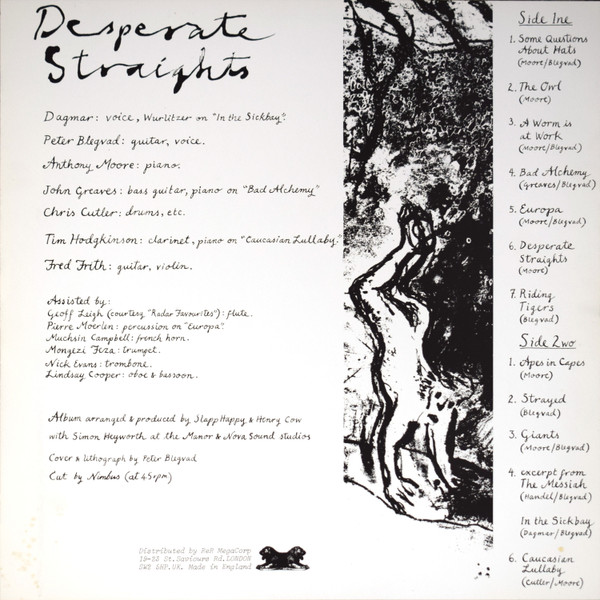 Desperate
Straights
Dagmar: voice, Wurlitzer on "In the Sickbay".
Peter Blegvad: guitar, voice.
Anthony Moore: piano.
John Greaves: bass guitar, piano on "Bad Alchemy"
Chris Cutler: drums, etc.
Tim Hodgkinson: clarinet, piano on "Caucasian Lullaby."
Fred Frith: guitar, violin.
Assisted by:
Geoff Leigh (courtesy "Radar Favourites"): flute.
Pierre Moerlin: percussion on "Europa".
Muchsin Campbell: french horn.
Mongezi Feza: trumpet.
Nick Evans: trombone.
Lindsay Cooper: oboe & bassoon.
Album arranged & produced by Slapp Happy & Henry Cow
with Simon Heyworth at the Manor & Nova Sound studios
Cover & lithograph by Peter Blegvad
Cut by Nimbus (at 45rpm)
Distributed by ReR MegaCorp
19-22 St. Saviours Rd. LONDON
SW2 5HP. UK. Made in England
Side 1ne
1. Some Questions
About Hats
(Moore/Blegvad)
2. The Owl
(Moore)
3. A Worm is
at Work
(Moore/Blegvad)
4. Bad Alchemy
(Greaves/Blegvad)
5. Europa
(Moore/Blegvad)
6. Desperate
Straights
(Moore)
7. Riding
Tigers
(Blegvad)
Side 2wo
1. Apes in Capes
(Moore)
2. Strayed
(Blegvad)
3. Giants
(Moore/Blegvad)
4. excerpt from
The Messiah
(Handel/Blegvad)
In the Sickbay
(Dagmar/Blegvad)
6. Caucasian
Lullaby
(Cutler/Moore)